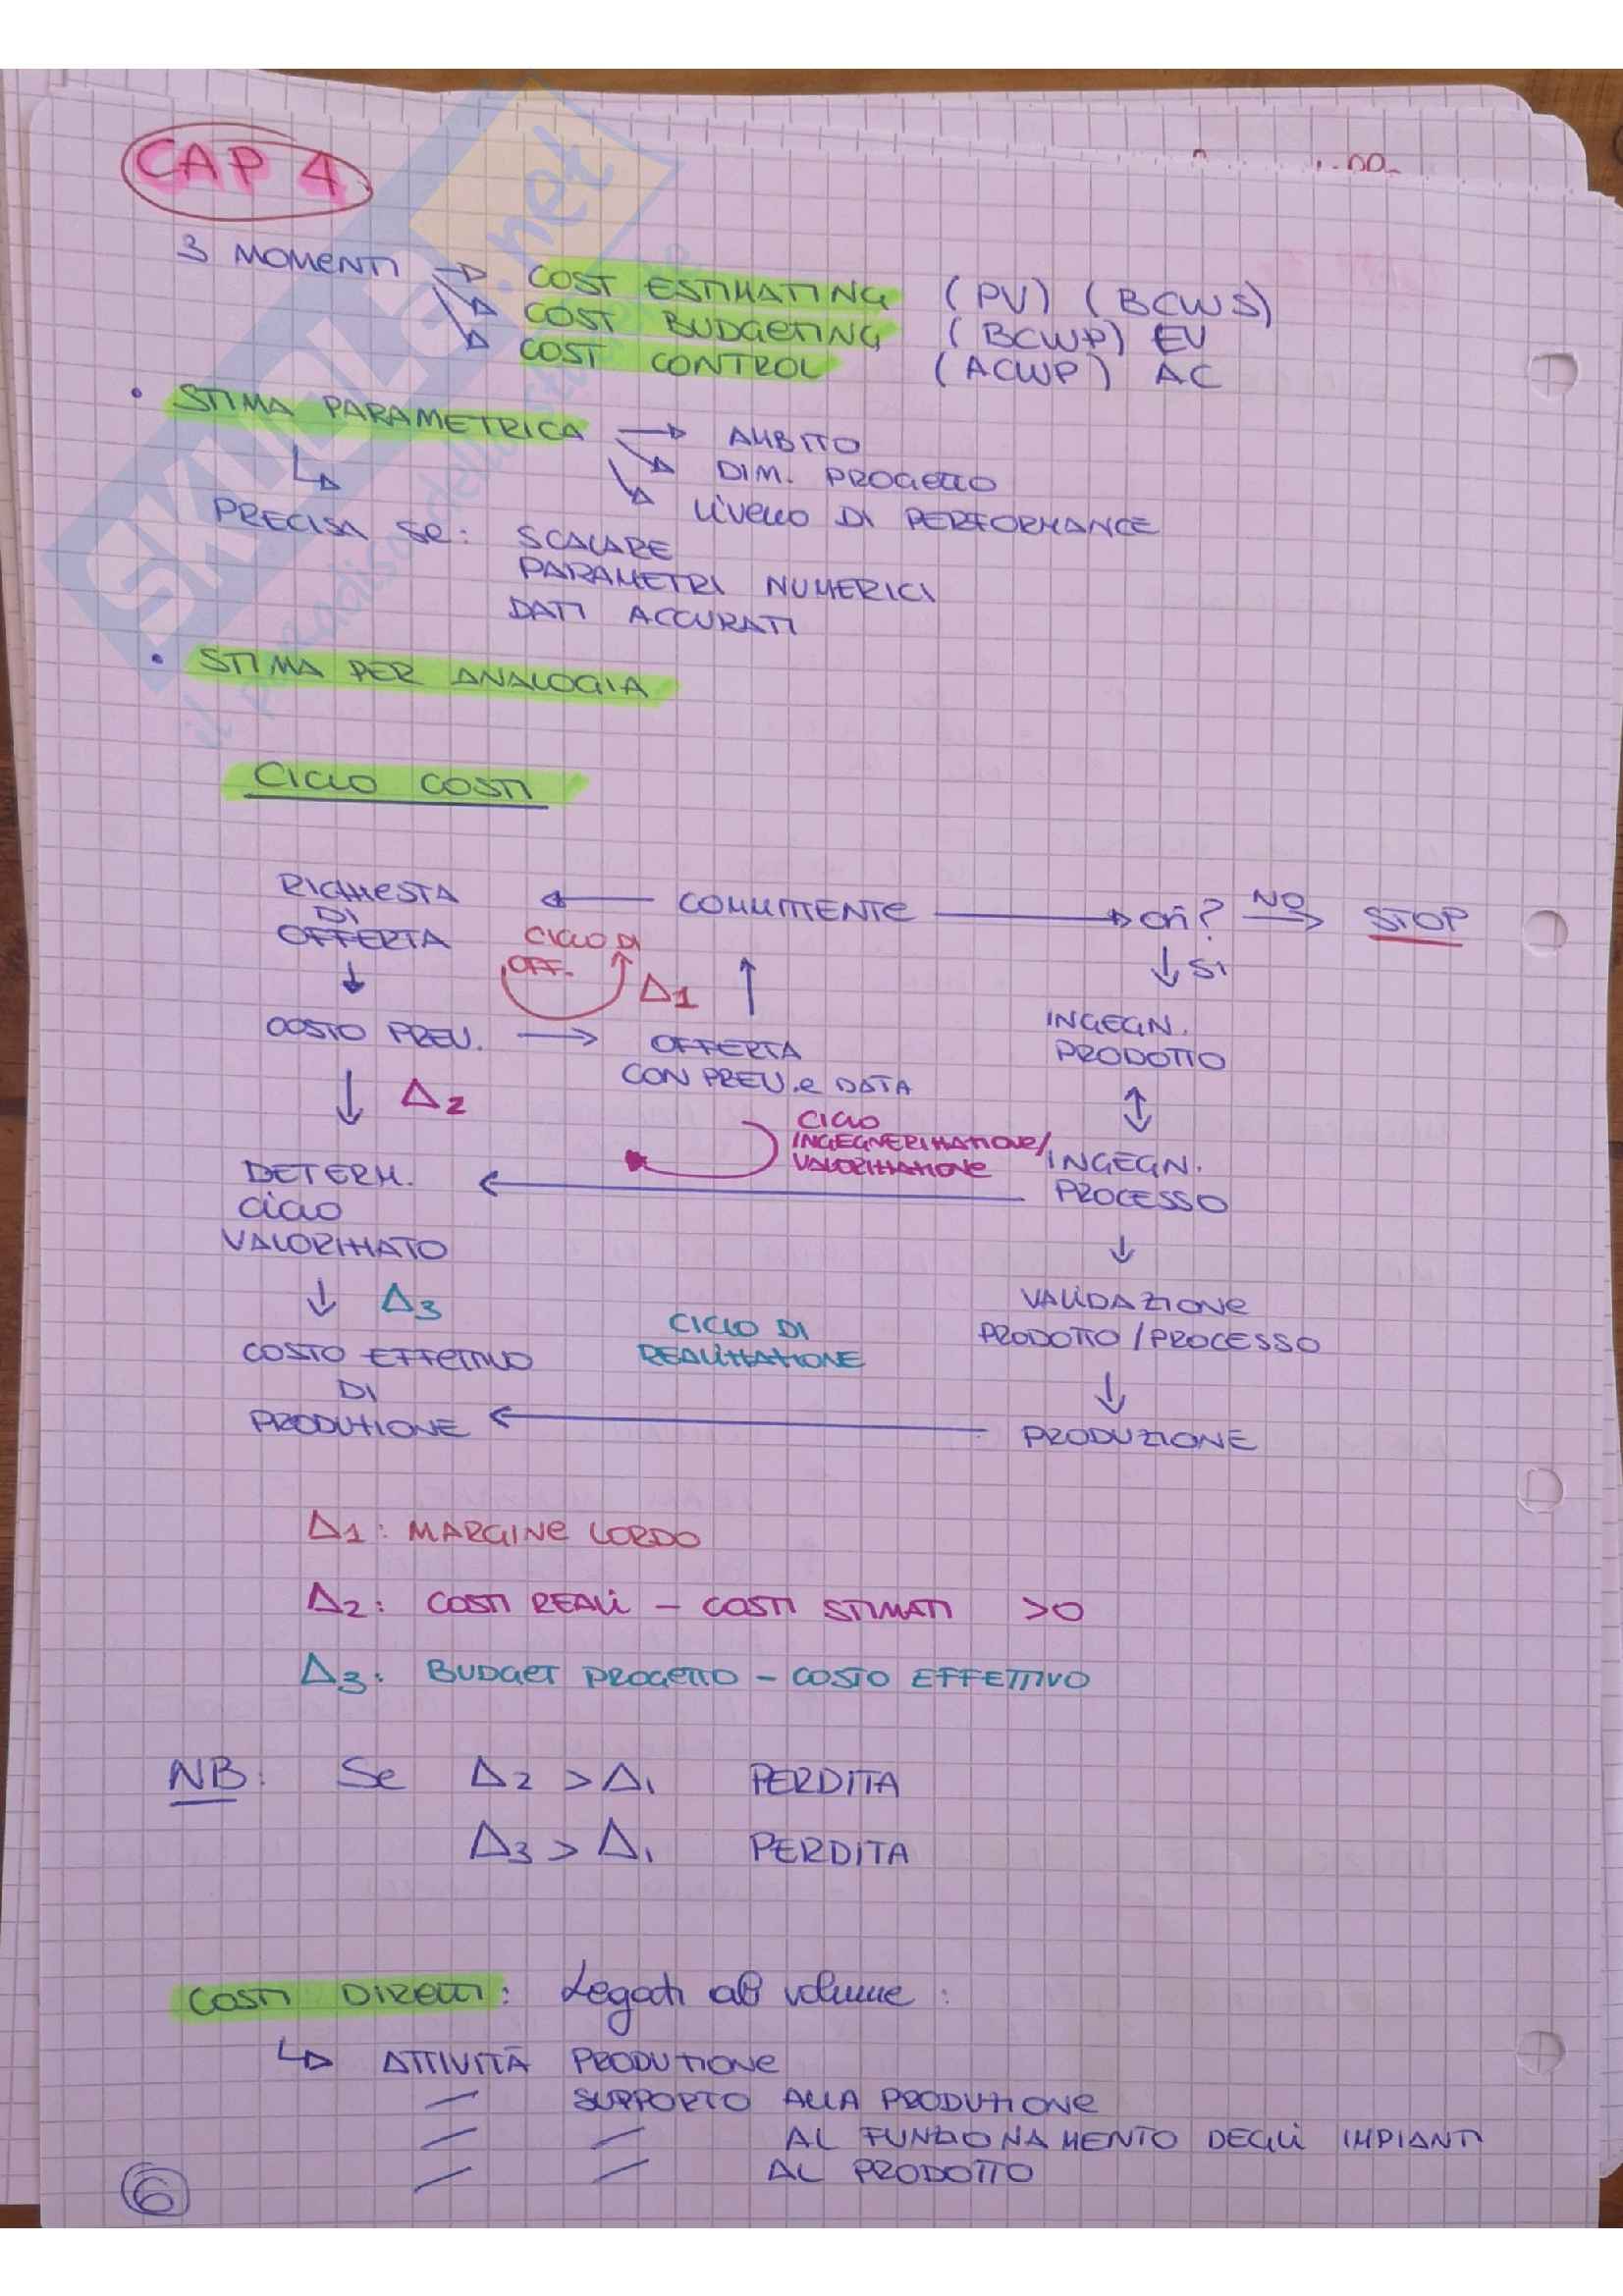 CAP 4
3 MOMENTI → COST ESTIMATING (PV) (BCWS)
COST BUDGETING (BCWP) EV
COST CONTROL (ACWP) AC
• STIMA PARAMETRICA → AMBITO
DIM. PROGETTO
LIVELLO DI PERFORMANCE
PRECISA SE: SCALARE
PARAMETRI NUMERICI
DATI ACCURATI
• STIMA PER ANALOGIA
CICLO COSTI
RICHIESTA DI OFFERTA ← COMMITTENTE → OK? NO → STOP
CICLO DI OFF. Δ1
↓ SI
COSTO PREV. → OFFERTA CON PREV. e DATA
INGEGN. PRODOTTO
↓ Δ2
CICLO INGEGNERIZZAZIONE/ VALORIZZAZIONE
DETERM. CICLO VALORIZZATO ← INGEGN. PROCESSO
↓ Δ3
CICLO DI REALIZZAZIONE
VALIDAZIONE PRODOTTO/PROCESSO
COSTO EFFETTIVO DI PRODUZIONE ← PRODUZIONE
Δ1: MARGINE LORDO
Δ2: COSTI REALI - COSTI STIMATI >0
Δ3: BUDGET PROGETTO - COSTO EFFETTIVO
NB: Se Δ2 > Δ1 PERDITA
Δ3 > Δ1 PERDITA
COSTI DIRETTI: Legati al volume:
ATTIVITÀ PRODUZIONE
SUPPORTO ALLA PRODUZIONE
AL FUNZIONAMENTO DEGLI IMPIANTI
AL PRODOTTO
6
SKUOLA.net